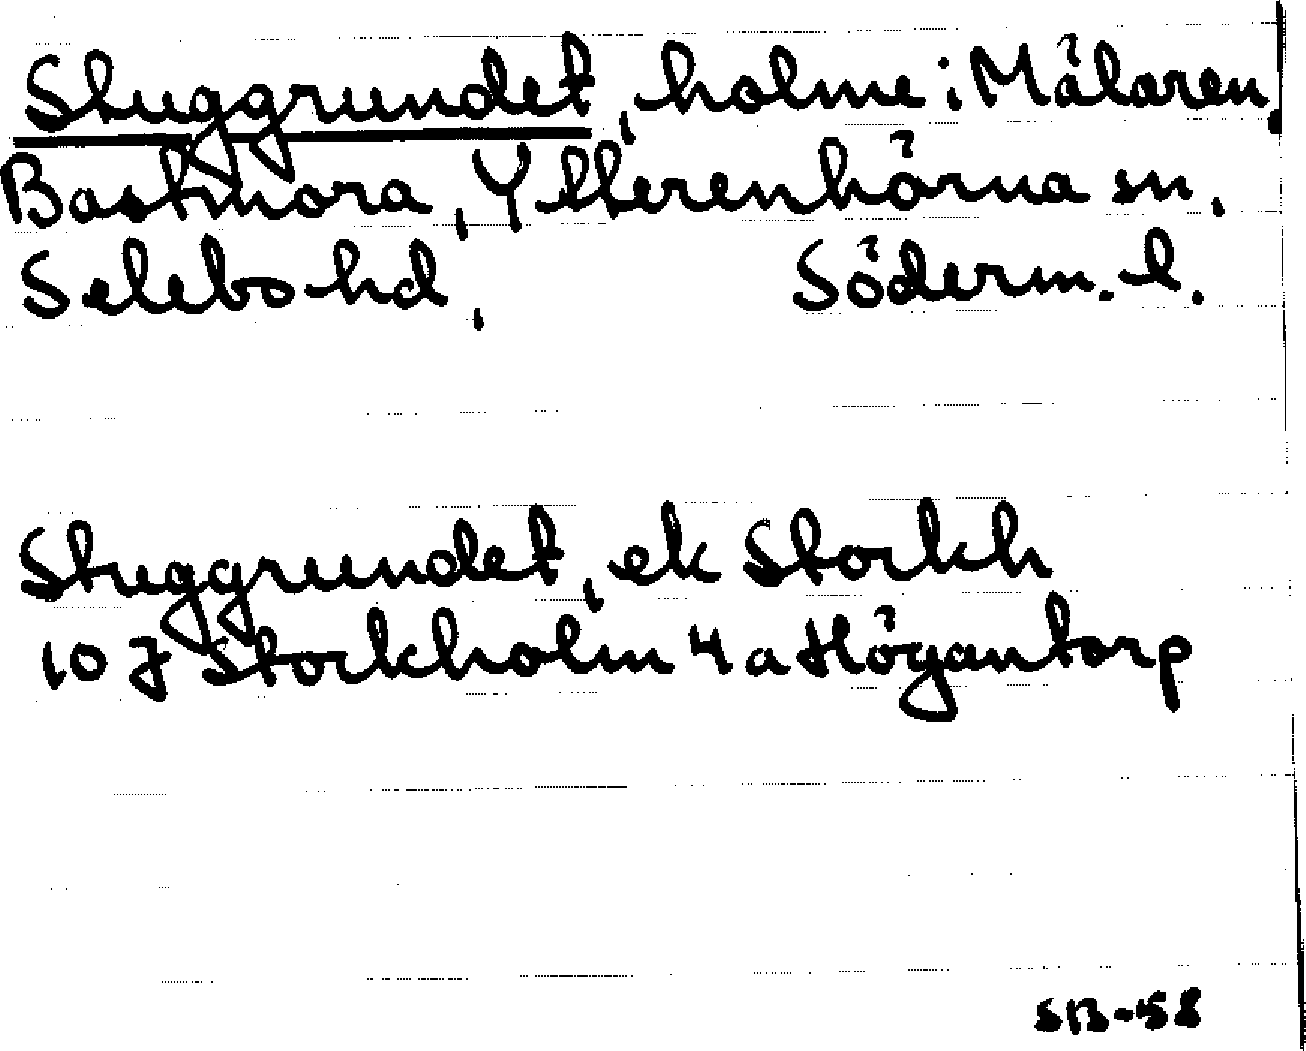 Stuggrundet, holme i Mälaren,
Bastmora, Ytterenhörna sn,
Selebo hd, Söderm. l.
Stuggrundet, ek Stockh
10 J Stockholm 4 a Högantorp
SB-58